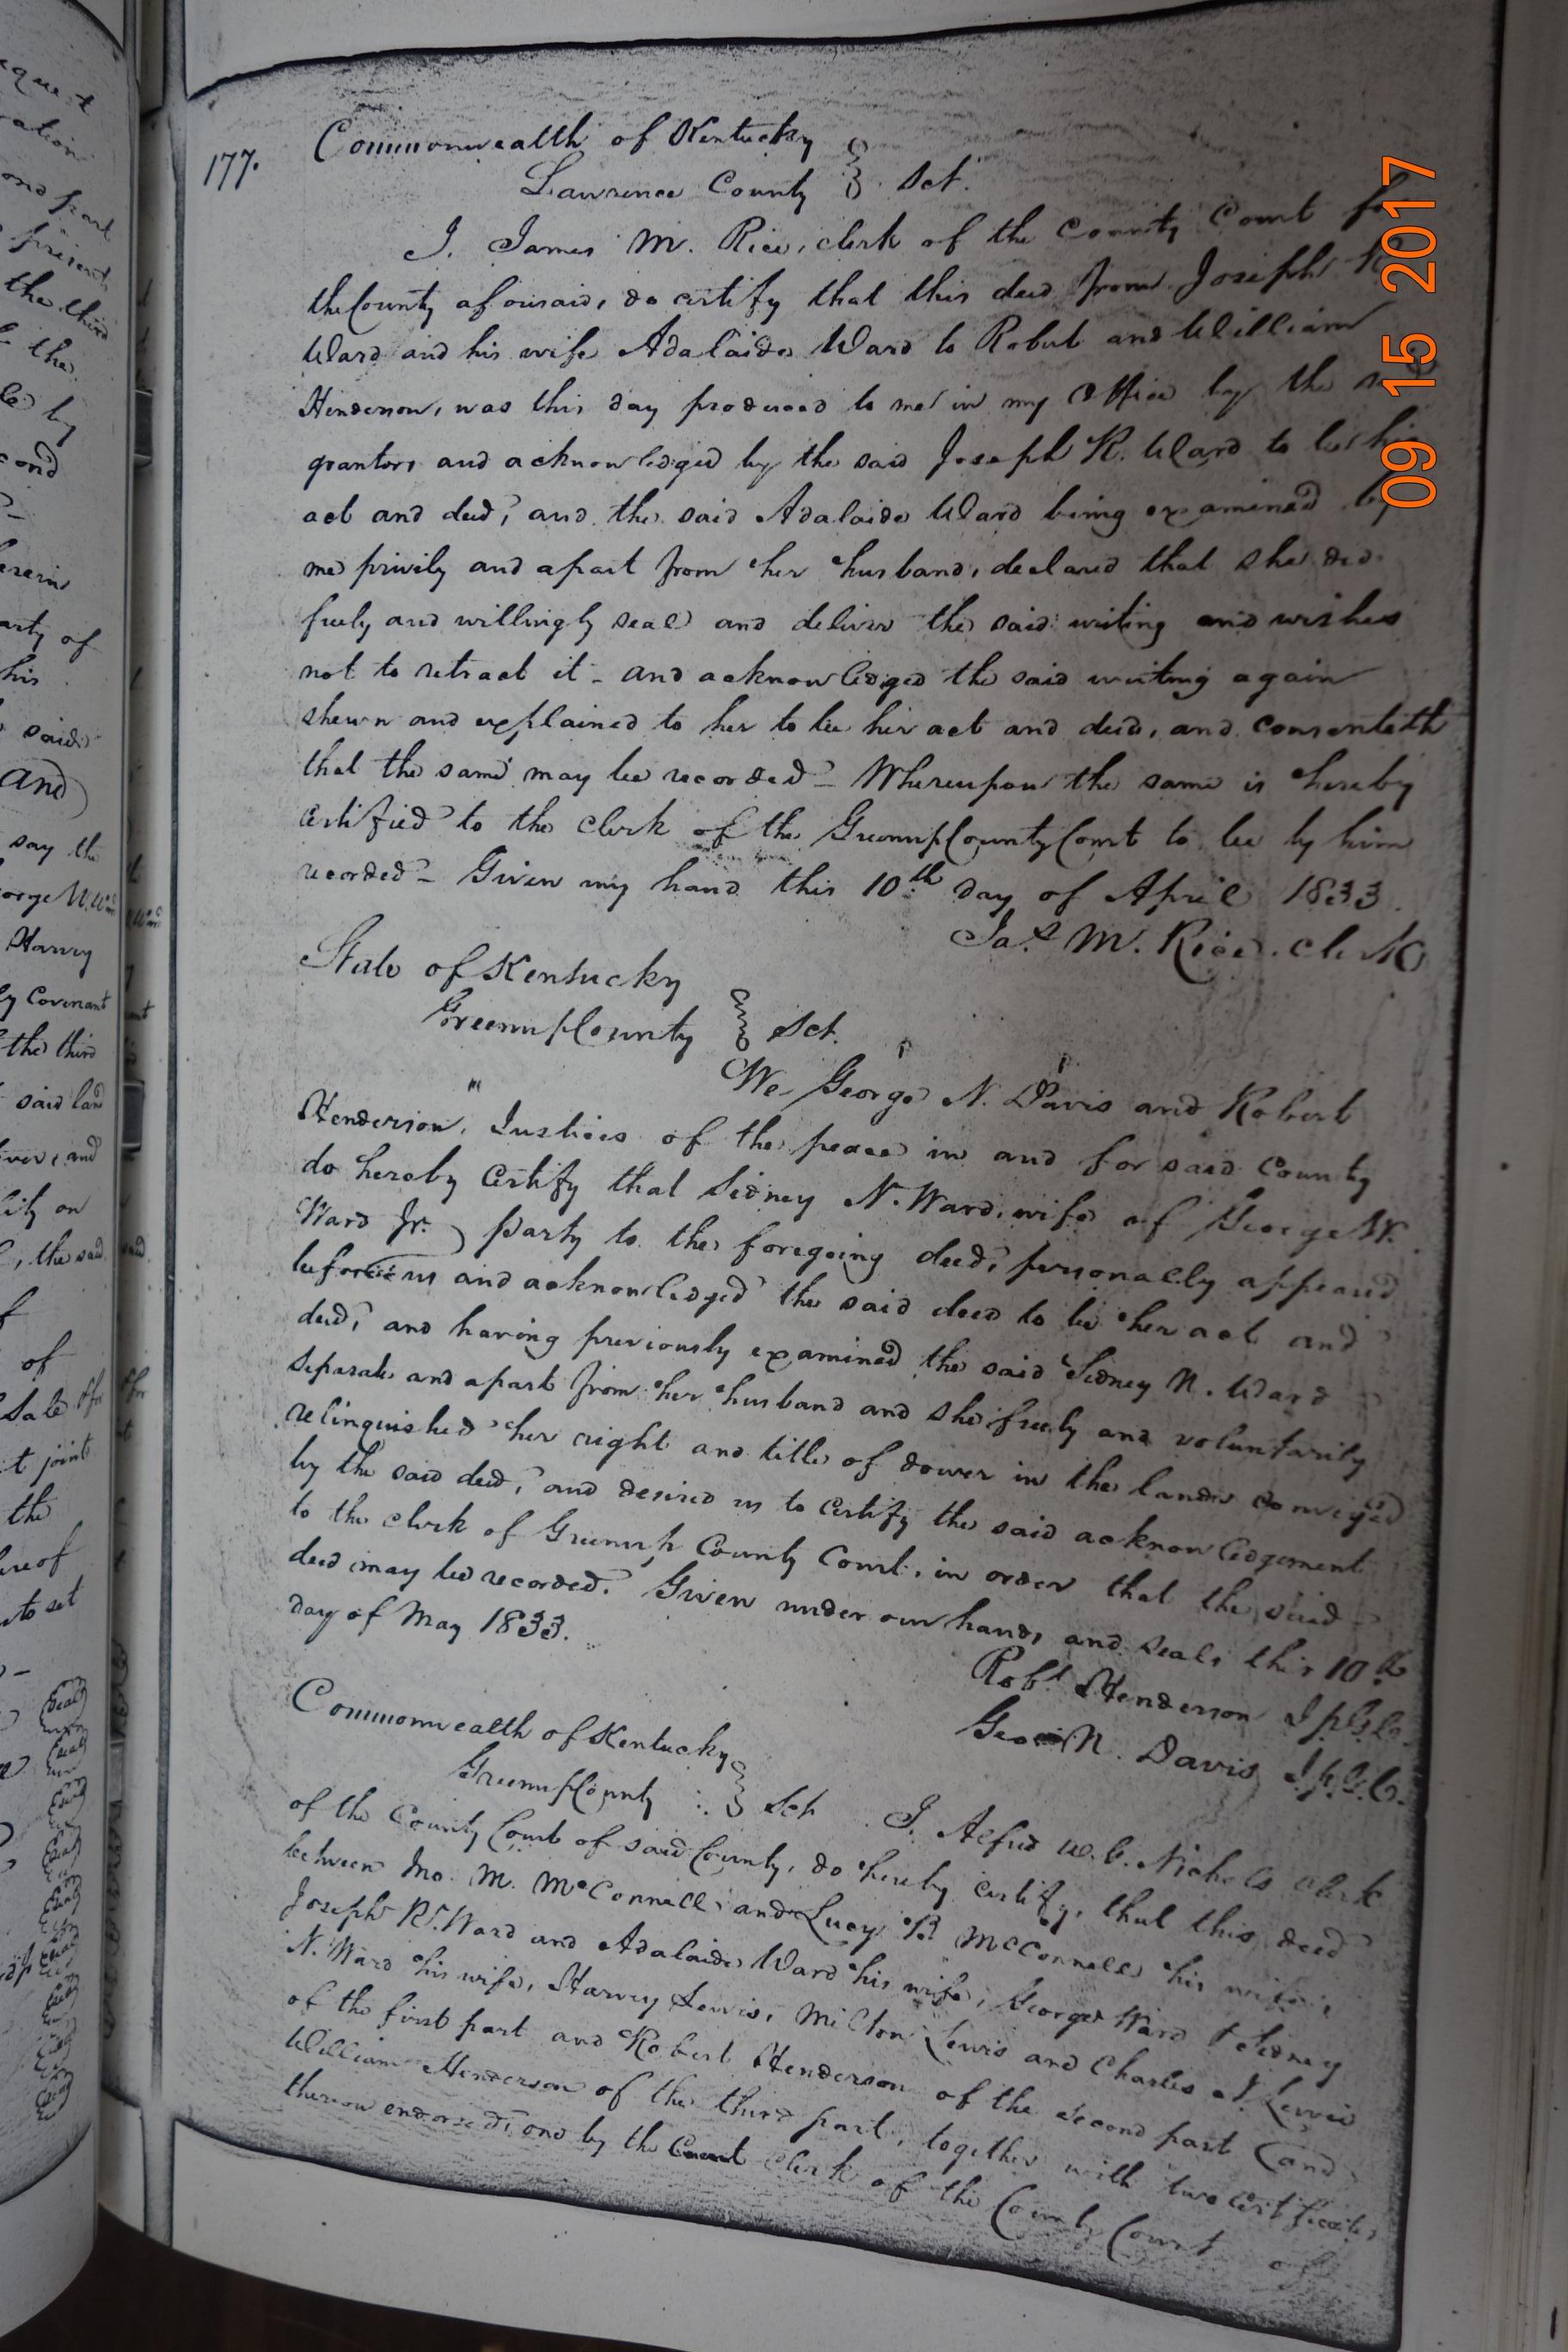 177.
Commonwealth of Kentucky
Lawrence County } Sct.
I. James M. Rice, clerk of the County Court for
the County aforesaid, do certify that this deed from Joseph R
Ward and his wife Adalaide Ward to Robert and William
Henderson, was this day produced to me in my Office by the
grantors and acknowledged by the said Joseph R. Ward to be his
act and deed, and the said Adalaide Ward being examined by
me privily and apart from her husband, declared that she did
freely and willingly seal and deliver the said writing and wishes
not to retract it - and acknowledged the said writing again
shewn and explained to her to be her act and deed, and consenteth
that the same may be recorded - Whereupon the same is hereby
certified to the clerk of the Greenup County Court to be by him
recorded - Given my hand this 10th day of April 1833.
Jas. M. Rice. Clerk
State of Kentucky
Greenup County } Sct.
We George N. Davis and Robert
Henderson, Justices of the peace in and for said County
do hereby certify that Sidney N. Ward, wife of George W.
Ward Jr. party to the foregoing deed, personally appeared
before us and acknowledged the said deed to be her act and
deed, and having previously examined the said Sidney N. Ward
separate and apart from her husband and she freely and voluntarily
relinquished her right and title of dower in the lands conveyed
by the said deed, and desired us to certify the said acknowledgement
to the clerk of Greenup County Court, in order that the said
deed may be recorded. Given under our hands and seals this 10th
day of May 1833.
Robt Henderson J.p.G.C.
Geo N. Davis J.p.G.C.
Commonwealth of Kentucky
Greenup County } Sct. I. Alfred W. C. Nichols Clerk
of the County Court of said County, do hereby certify, that this deed
between Jno. M. McConnell, and Lucy McConnell his wife,
Joseph R. Ward and Adalaide Ward his wife, George Ward & Sidney
N. Ward his wife, Harvey Lewis, Milton Lewis and Charles Lewis
of the first part and Robert Henderson of the second part and
William Henderson of the third part, together with two certificates
thereon endorsed, one by the clerk of the County Court of
09 15 2017